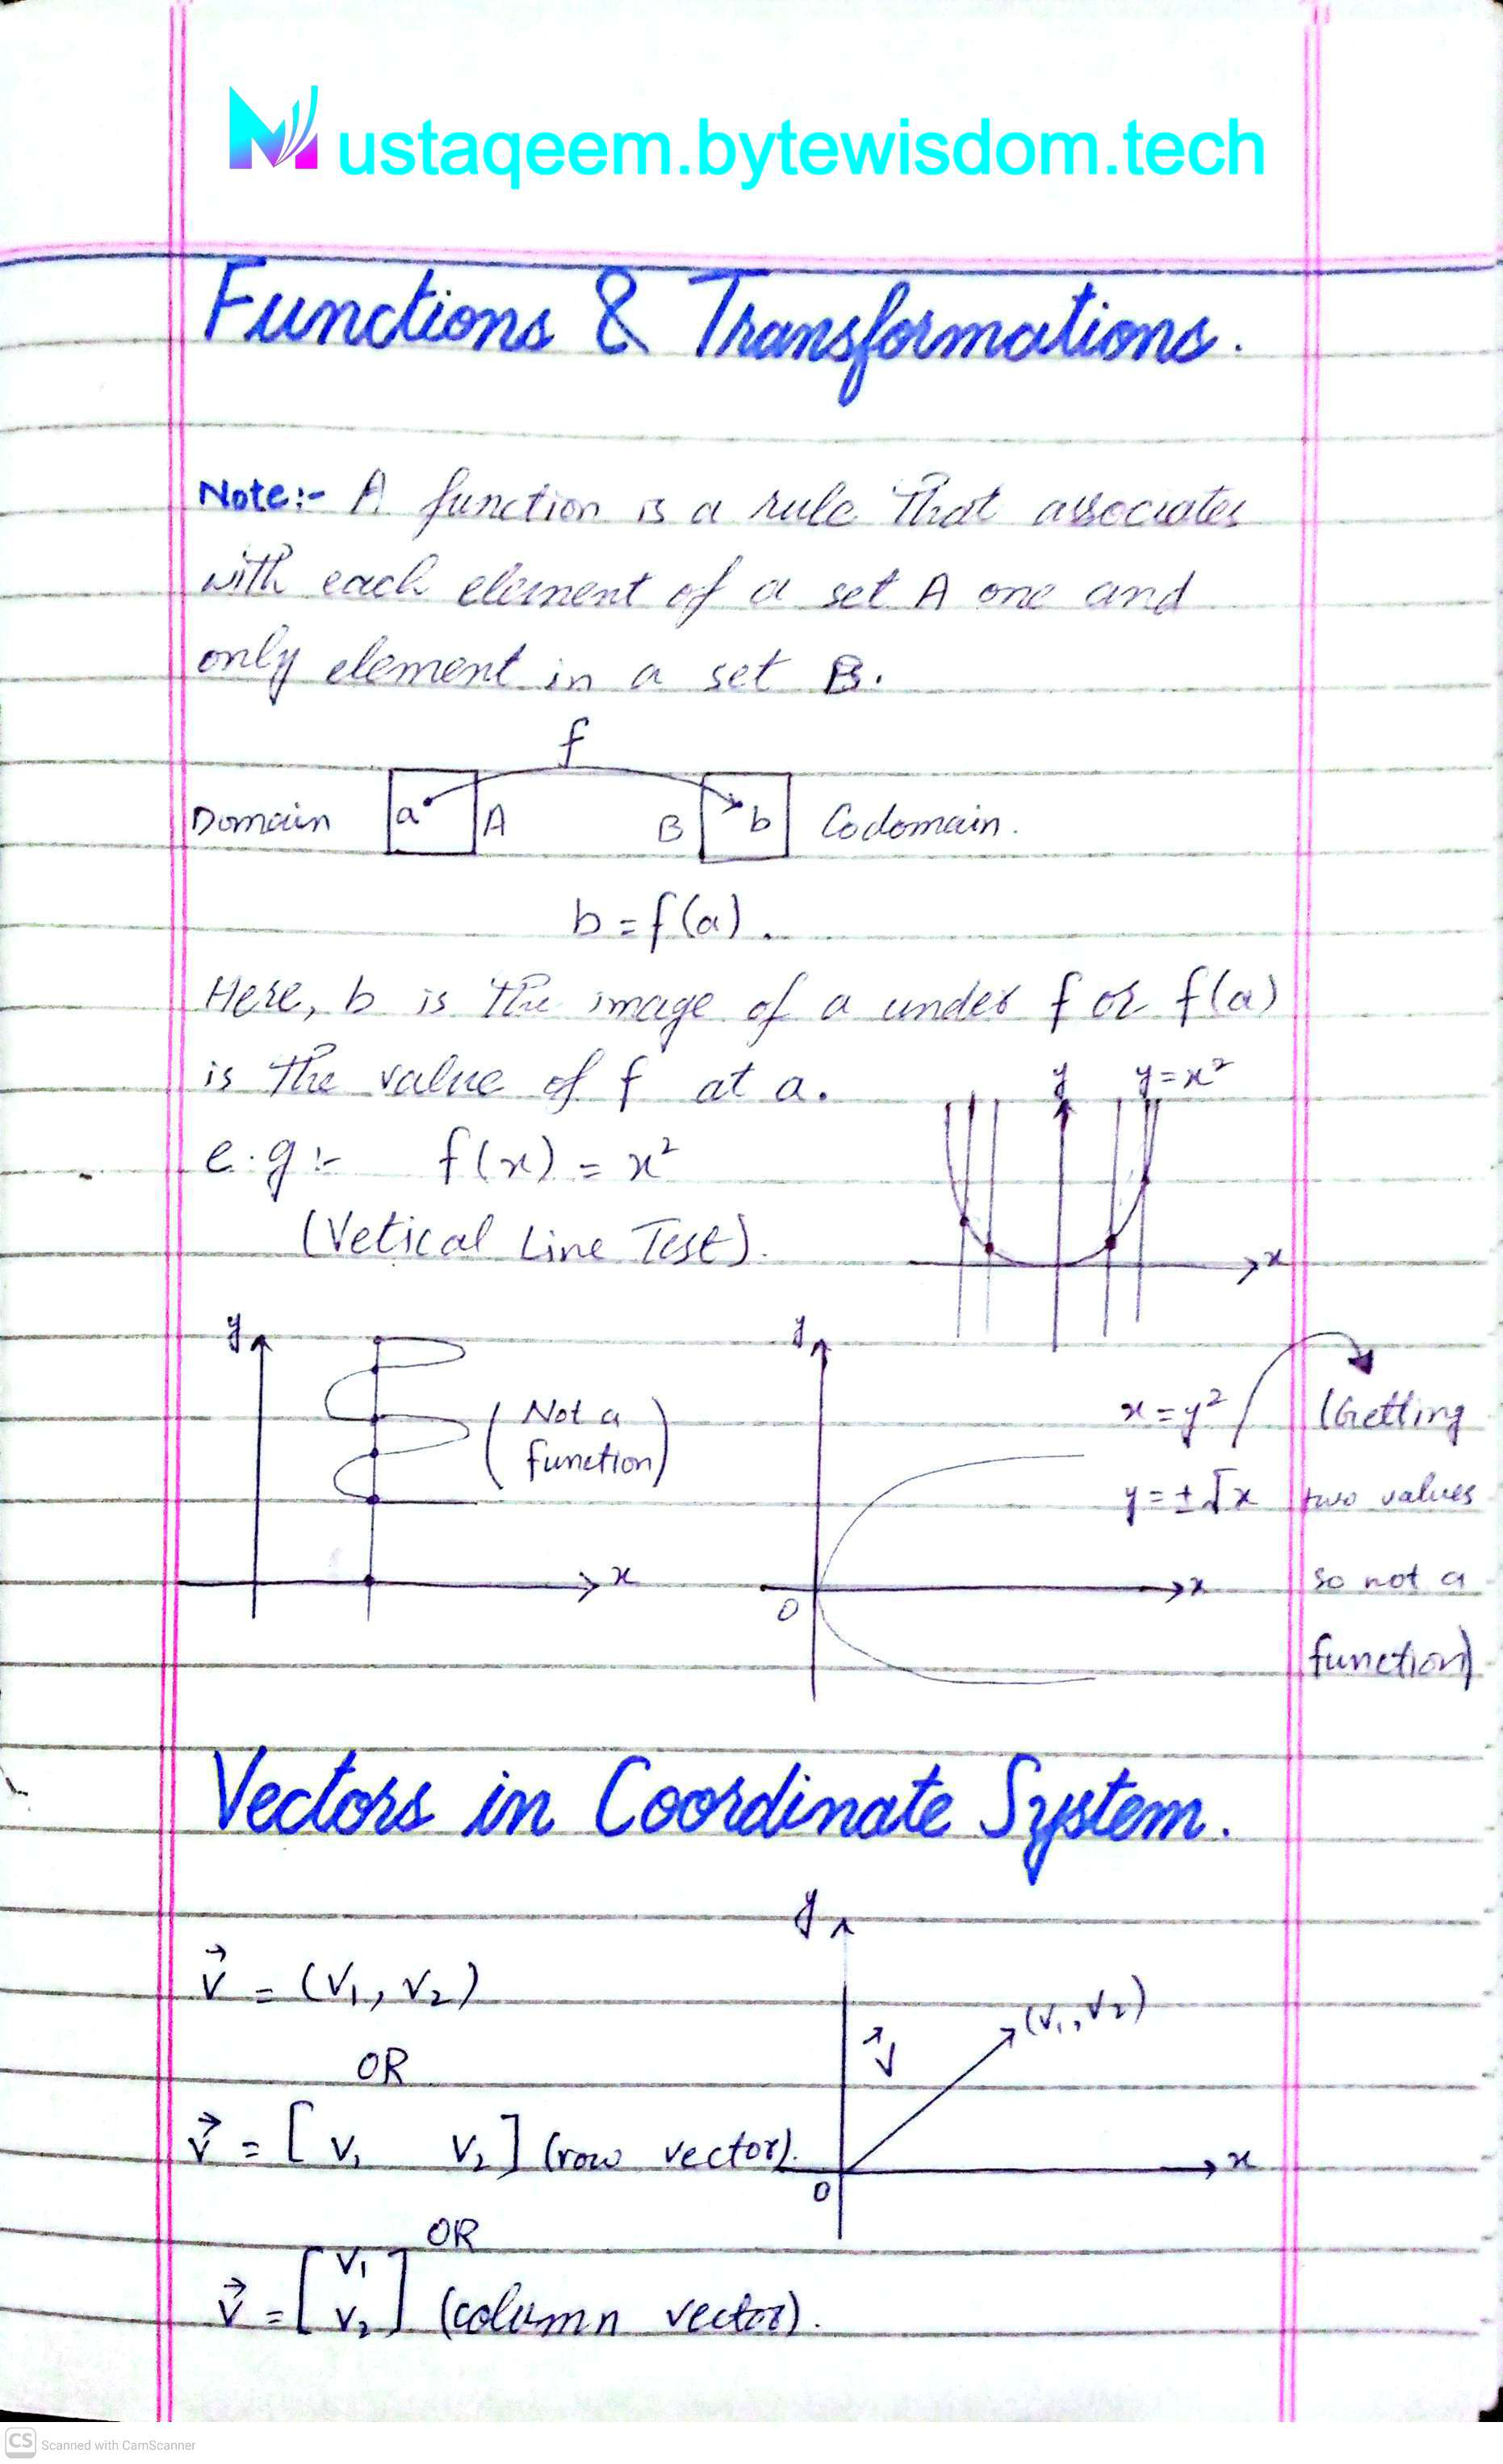 Mustaqeem.bytewisdom.tech
Functions & Transformations.
Note:- A function is a rule that associates
with each element of a set A one and
only element in a set B.
f
Domain a A B b Codomain.
b = f(a).
Here, b is the image of a under f or f(a)
is the value of f at a.
y y=x²
e.g:- f(x) = x²
(Vetical Line Test).
x
y
(Not a
function)
x
y
x=y²
y=±√x
x
0
(Getting
two values
so not a
function)
Vectors in Coordinate System.
y
v⃗ = (v₁, v₂)
(v₁, v₂)
v⃗
OR
v⃗ = [v₁ v₂] (row vector).
x
0
OR
v⃗ = [v₁
v₂] (column vector).
CS Scanned with CamScanner